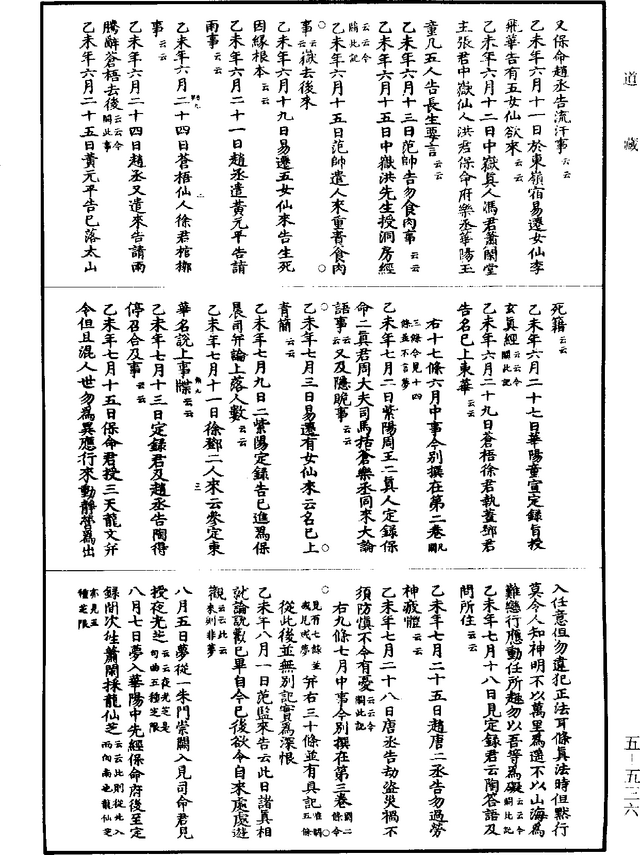 道藏
又保命趙丞告流汗事云云
乙未年六月十一日於東嶺宿易遷女仙李
飛華告有五女仙欲來云云
乙未年六月十二日中嶽真人馮君蕭閑堂
主張君中嶽仙人洪君保命府樂丞華陽玉
童凡五人告長生要言云云
乙未年六月十三日范帥告勿食肉事云云
乙未年六月十五日中嶽洪先生授洞房經
云云今闕此記
乙未年六月十五日范帥遣人來重責食肉
事云云嶽去後來
乙未年六月十九日易遷五女仙來告生死
因緣根本云云
乙未年六月二十一日趙丞遣黃元平告請
雨事云云
乙未年六月二十四日蒼梧仙人徐君棺槨
事云云
乙未年六月二十四日趙丞又遣來告請雨
騰辭蒼梧去後云云今闕此事
乙未年六月二十五日黃元平告已落太山
死籍云云
乙未年六月二十七日華陽童宣定錄旨授
玄真經云云今闕此記
乙未年六月二十九日蒼梧徐君執蓋鄧君
告名已上東華云云
右十七條六月中事今別撰在第二卷凡闕
三條今見十四條並不言夢
乙未年七月二日紫陽周王二真人定錄保
命二真君周大夫司馬括蒼樂丞同來大論
語事云云又及隱晚事云云
乙未年七月三日易遷有女仙來云名已上
青簡云云
乙未年七月九日二紫陽定錄告已進為保
晨司并論上落人數云云
乙未年七月十一日徐鄧二人來云參定東
華名說上事牒云云
乙未年七月十三日定錄君及趙丞告陶得
停召合及事云云
乙未年七月十五日保命君授三天龍文并
令但且混人世勿為異應行來動靜營為出
入任意但勿違犯正法耳條真法時但默行
莫令人知神明不以萬里為遥不以山海為
難戀行應動任所趣勿以吾等為礙云云今闕此記
乙未年七月十八日見定錄君云陶答語及
問所住云云
乙未年七月二十五日趙唐二丞告勿過勞
神疲體云云
乙未年七月二十八日唐丞告劫盜災禍不
須防慎不令有憂云云今闕此記
右九條七月中事今別撰在第三卷闕二條今
見有七條並或見或夢并右三十條並有具記唯闕五條
從此後並無別記實為深恨
乙未年八月一日范監來告云此日諸真相
就論說歡已畢自今已後欲令自來處處遊
觀云云此云來則非夢
八月五日夢從一朱門崇闕入見司命君見
授夜光芝云云夜光芝是句曲五種芝限
八月七日夢入華陽中先經保命府後至定
錄間次往蕭閑採龍仙芝云云此則從北入而向南也龍仙芝
亦是五種芝限
五-五三六